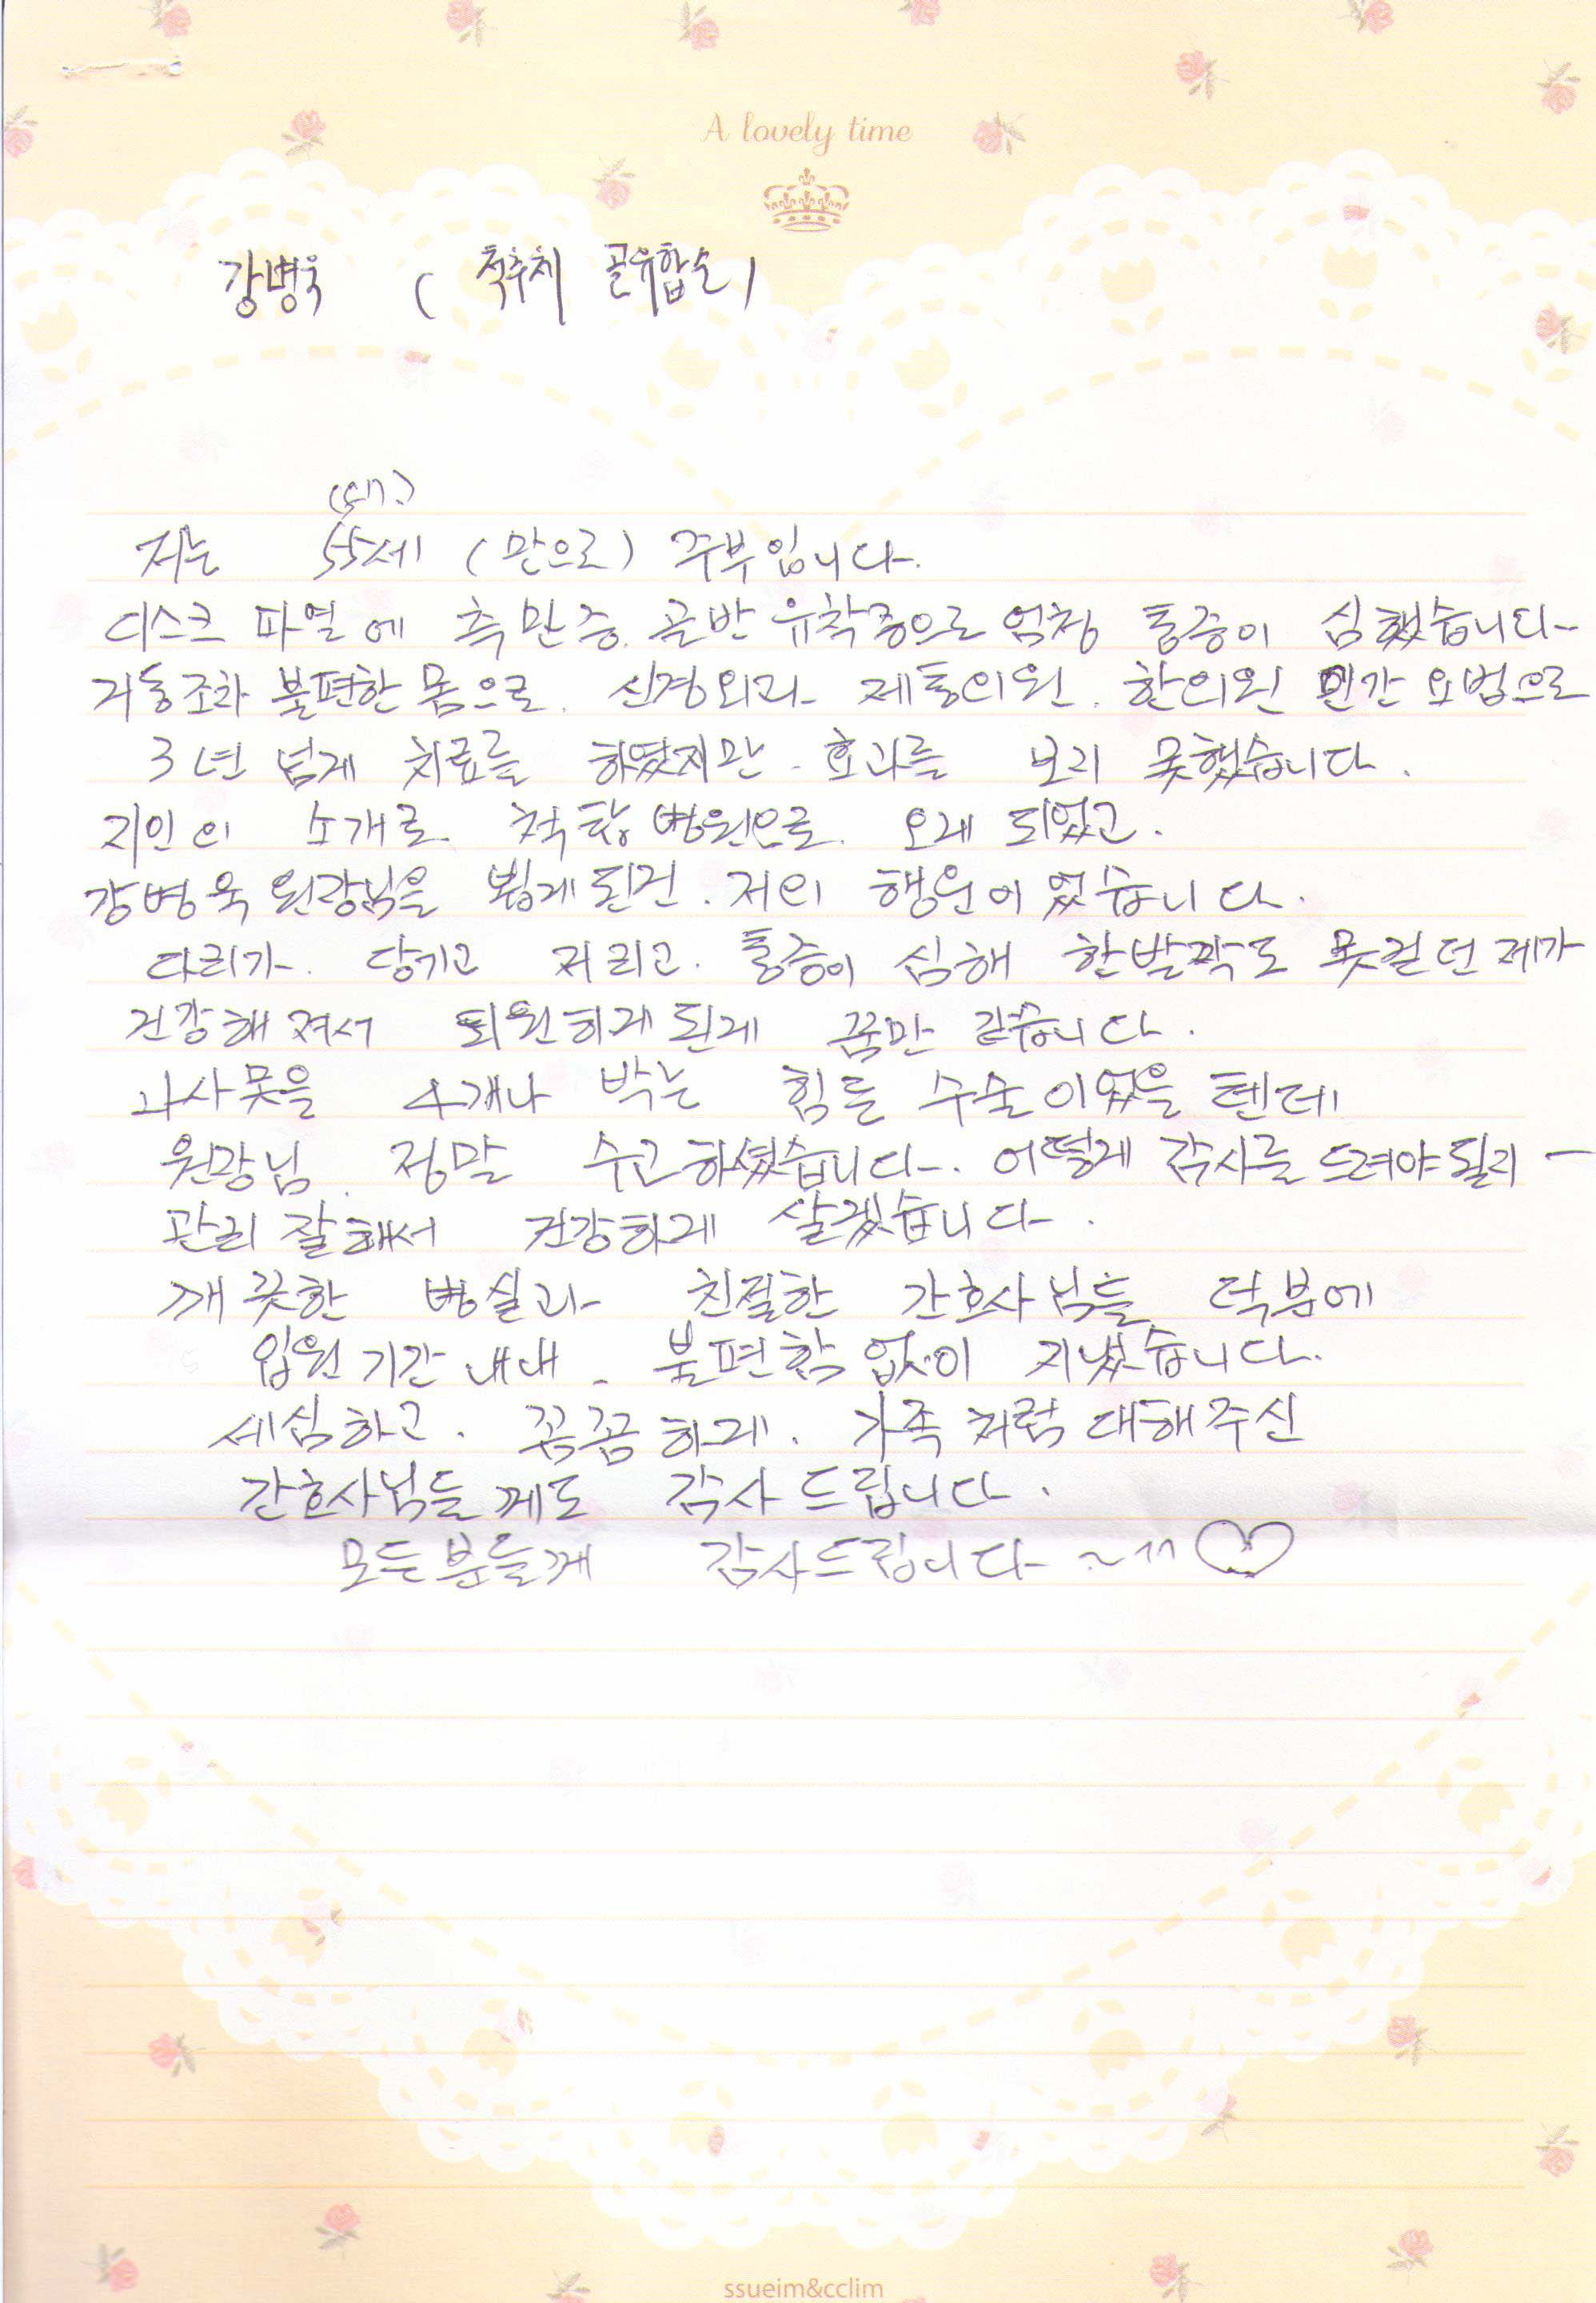 A lovely time
강병욱 ( 척추체 골유합술 )
저는 55세 (만으로) 주부입니다.
디스크 파열에 측만증. 골반 유착증으로 엄청 통증이 심했습니다
거동조차 불편한 몸으로. 신경외과 제통의원. 한의원 민간 요법으로
3년 넘게 치료를 하였지만. 효과를 보지 못했습니다.
지인의 소개로 척탑병원으로. 오게 되었고.
강병욱 원장님을 뵙게된건. 저의 행운이었습니다.
다리가. 당기고 저리고. 통증이 심해 한발짝도 못걷던 제가
건강해져서 퇴원하게된게 꿈만 같습니다.
나사못을 4개나 박는 힘든 수술이었을 텐데
원장님. 정말 수고하셨습니다. 어떻게 감사를 드려야될지 ㅡ
관리 잘해서 건강하게 살겠습니다.
깨끗한 병실과 친절한 간호사님들 덕분에
입원기간내내. 불편함 없이 지냈습니다.
세심하고. 꼼꼼하게. 가족처럼 대해주신
간호사님들께도 감사드립니다.
모든분들께 감사드립니다~^^♡
ssueim&cclim